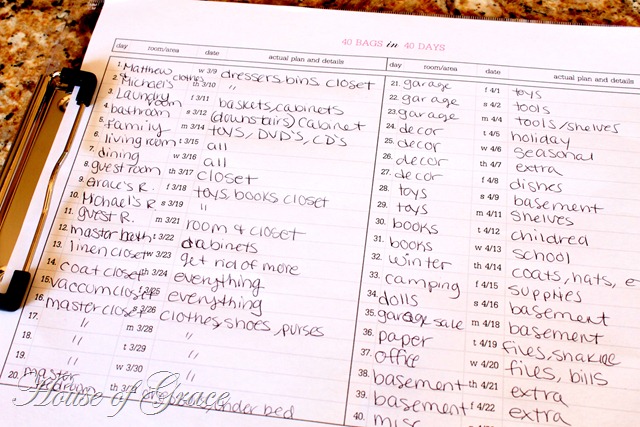 40 BAGS in 40 DAYS
day room/area date actual plan and details
1. Matthew clothes w 3/9 dressers, bins, closet
2. Michael's th 3/10 "
3. Laundry room f 3/11 baskets, cabinets
4. bathroom s 3/12 (downstairs) cabinet
5. family m 3/14 toys, DVD's, CD's
6. living room t 3/15 all
7. dining w 3/16 all
8. guest room th 3/17 closet
9. Grace's R. f 3/18 toys, books, closet
10. Michael's R. s 3/19 "
11. guest R. m 3/21 room & closet
12. master bath t 3/22 cabinets
13. linen closet w 3/23 get rid of more
14. coat closet th 3/24 everything
15. vaccum closet f 3/25 everything
16. master closet s 3/26 clothes, shoes, purses
17. " m 3/28 "
18. " t 3/29 "
19. " w 3/30 "
20. master th 3/31 under bed
day room/area date actual plan and details
21. garage f 4/1 toys
22. garage s 4/2 tools
23. garage m 4/4 tools/shelves
24. decor t 4/5 holiday
25. decor w 4/6 seasonal
26. decor th 4/7 extra
27. decor f 4/8 dishes
28. toys s 4/9 basement
29. toys m 4/11 shelves
30. books t 4/12 children
31. books w 4/13 school
32. winter th 4/14 coats, hats,
33. camping f 4/15 supplies
34. dolls s 4/16 basement
35. garage sale m 4/18 basement
36. paper t 4/19 files,
37. office w 4/20 files, bills
38. basement th 4/21 extra
39. basement f 4/22 extra
40. misc
House of Grace